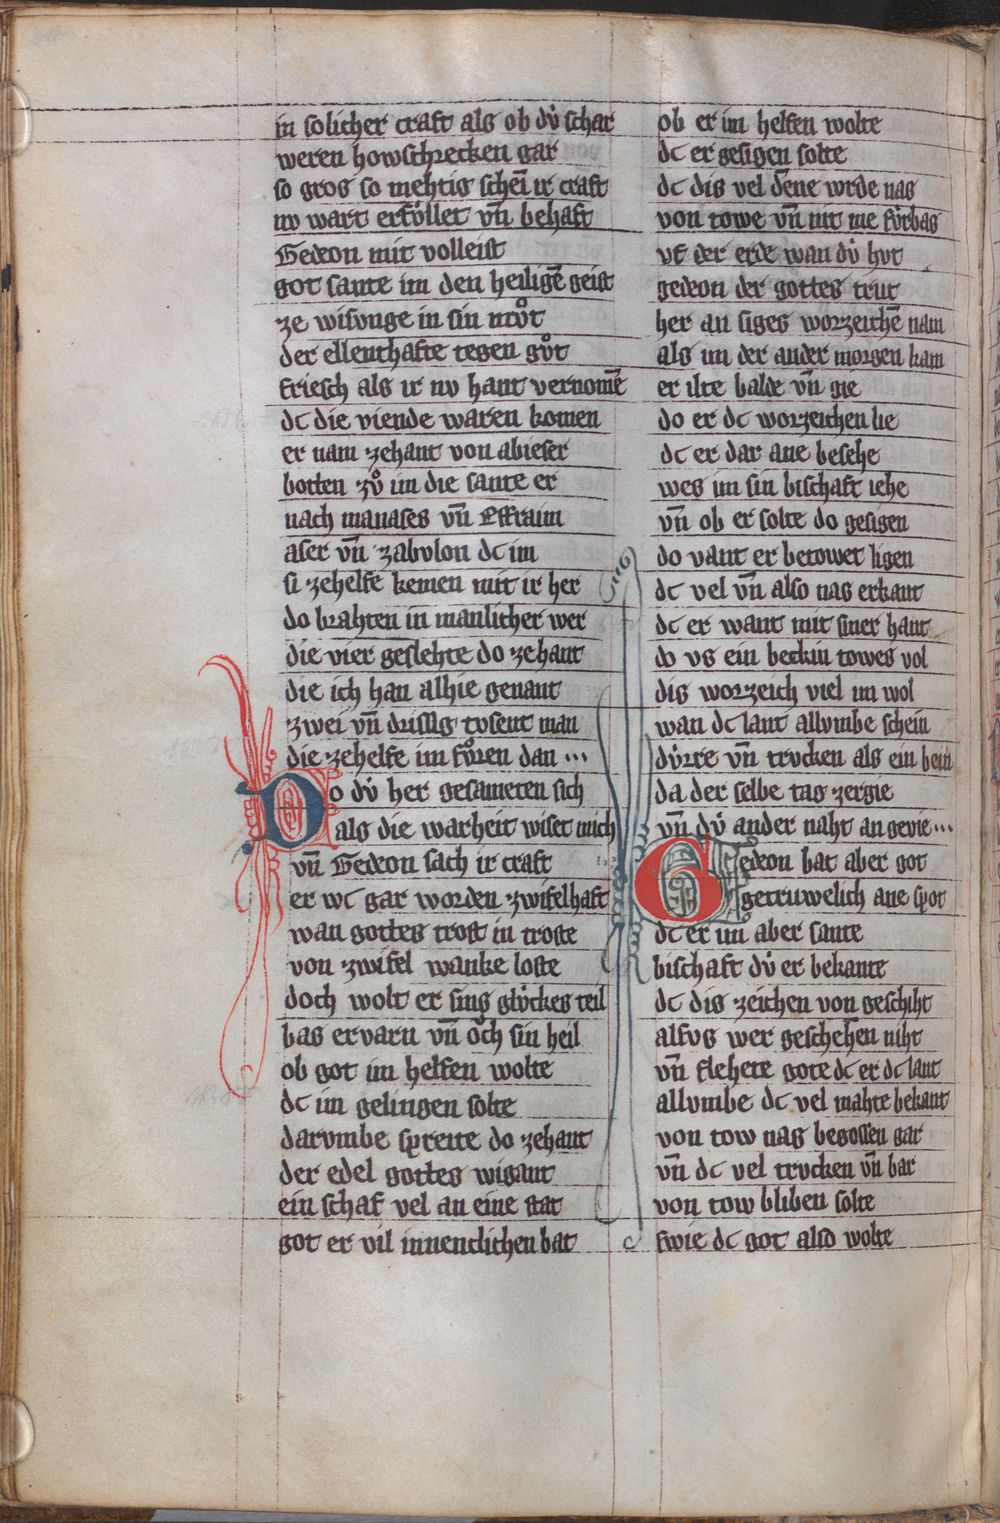 in solicher craft als ob dv̍ schar
weren howschrecken gar
so gros so mehtig schei̅ ir craft
nv wart erfo̍llet vn̅ behaft
Gedeon mit volleist
got sante im den heilige̅ geist
ze wisvnge in sin mvͦt
der ellenthafte tegen gvͦt
friesch als ir nv hant vernome̅
dc die viende waren komen
er nam zehant von abieser
botten zvͦ im die sante er
nach manases vn̅ Effraim
aser vn̅ zabvlon dc im
si zehelfe kemen mit ir her
do brahten in manlicher wer
die vier geslehte do zehant
die ich han alhie genant
zwei vn̅ drisig tvsent man
die zehelfe im fvͦren dan ...
Do dv̍ her gesameten sich
als die warheit wiset mich
vn̅ Gedeon sach ir craft
er wc gar worden zwifelhaft
wan gottes trost in troste
von zwifel wanke loste
doch wolt er sins glv̍ckes teil
bas ervarn vn̅ oͮch sin heil
ob got im helfen wolte
dc im gelingen solte
darvmbe spreite do zehant
der edel gottes wigant
ein schaf vel an eine stat
got er vil innenclichen bat
ob er im helfen wolte
dc er gesigen solte
dc dis vel de̅ne wrde nas
von towe vn̅ nit me fv̍rbas
vf der erde wan dv̍ hvt
gedeon der gottes trut
her an siges worzeiche̅ nam
als im der ander morgen kam
er ilte balde vn̅ gie
do er dc worzeichen lie
dc er dar ane besehe
wes im sin bischaft iehe
vn̅ ob er solte do gesigen
do vant er betowet ligen
dc vel vn̅ also nas erkant
dc er want mit siner hant
do vs ein beckin towes vol
dis worzeich viel im wol
wan dc lant allvmbe schein
dv̍rre vn̅ trvcken als ein bein
da der selbe tag zergie
vn̅ dv̍ ander naht an gevie ...
Gedeon bat aber got
getruwelich ane spot
dc er im aber sante
bischaft dv̍ er bekante
dc dis zeichen von geschiht
alsvs wer geschehen niht
vn̅ flehete gote dc er dc lant
allvmbe dc vel mahte bekant
von tow nas begossen gar
vn̅ dc vel trvcken vn̅ bar
von tow bliben solte
swie dc got also wolte